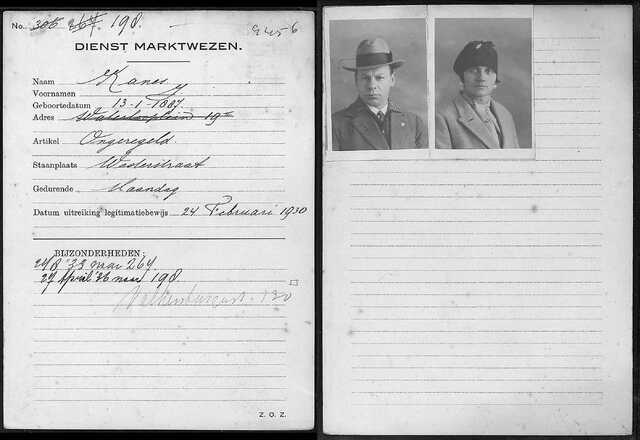 No. 305 264 198.
DIENST MARKTWEZEN.
Naam Kanes
Voornamen
Geboortedatum 13-1-1887
Adres Waterlooplein 19
Artikel Ongeregeld.
Staanplaats Westerstraat
Gedurende Maandag
Datum uitreiking legitimatiebewijs 24 Februari 1930
BIJZONDERHEDEN:
24/8 '33 naar 264
27 April '36 naar 198.
130
Z. O. Z.